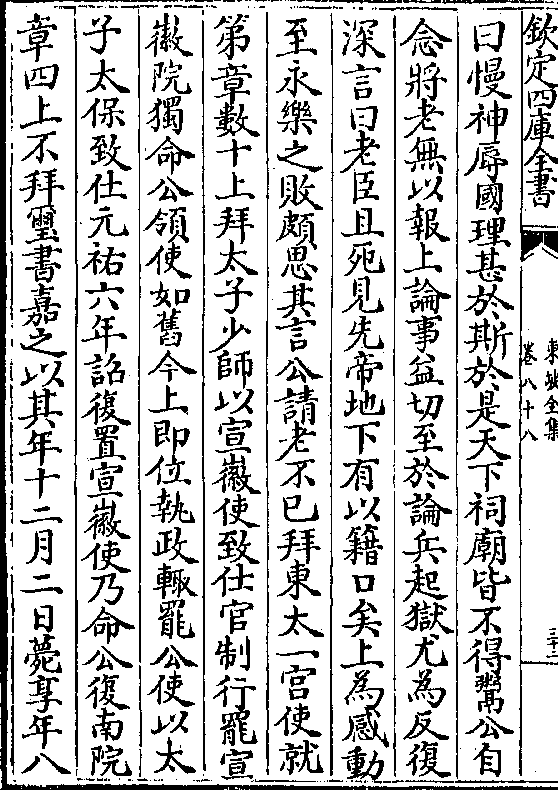 欽定四庫全書
東坡全集
卷八十八
三十二
曰慢神辱國理甚於斯於是天下祠廟皆不得鬻公自
念將老無以報上論事益切至於論兵起獄尤為反復
深言曰老臣且死見先帝地下有以籍口矣上為感動
至永樂之敗頗思其言公請老不已拜東太一宮使就
第章數十上拜太子少師以宣徽使致仕官制行罷宣
徽院獨命公領使如舊今上即位執政輙罷公使以太
子太保致仕元祐六年詔復置宣徽使乃命公復南院
章四上不拜璽書嘉之以其年十二月二日薨享年八